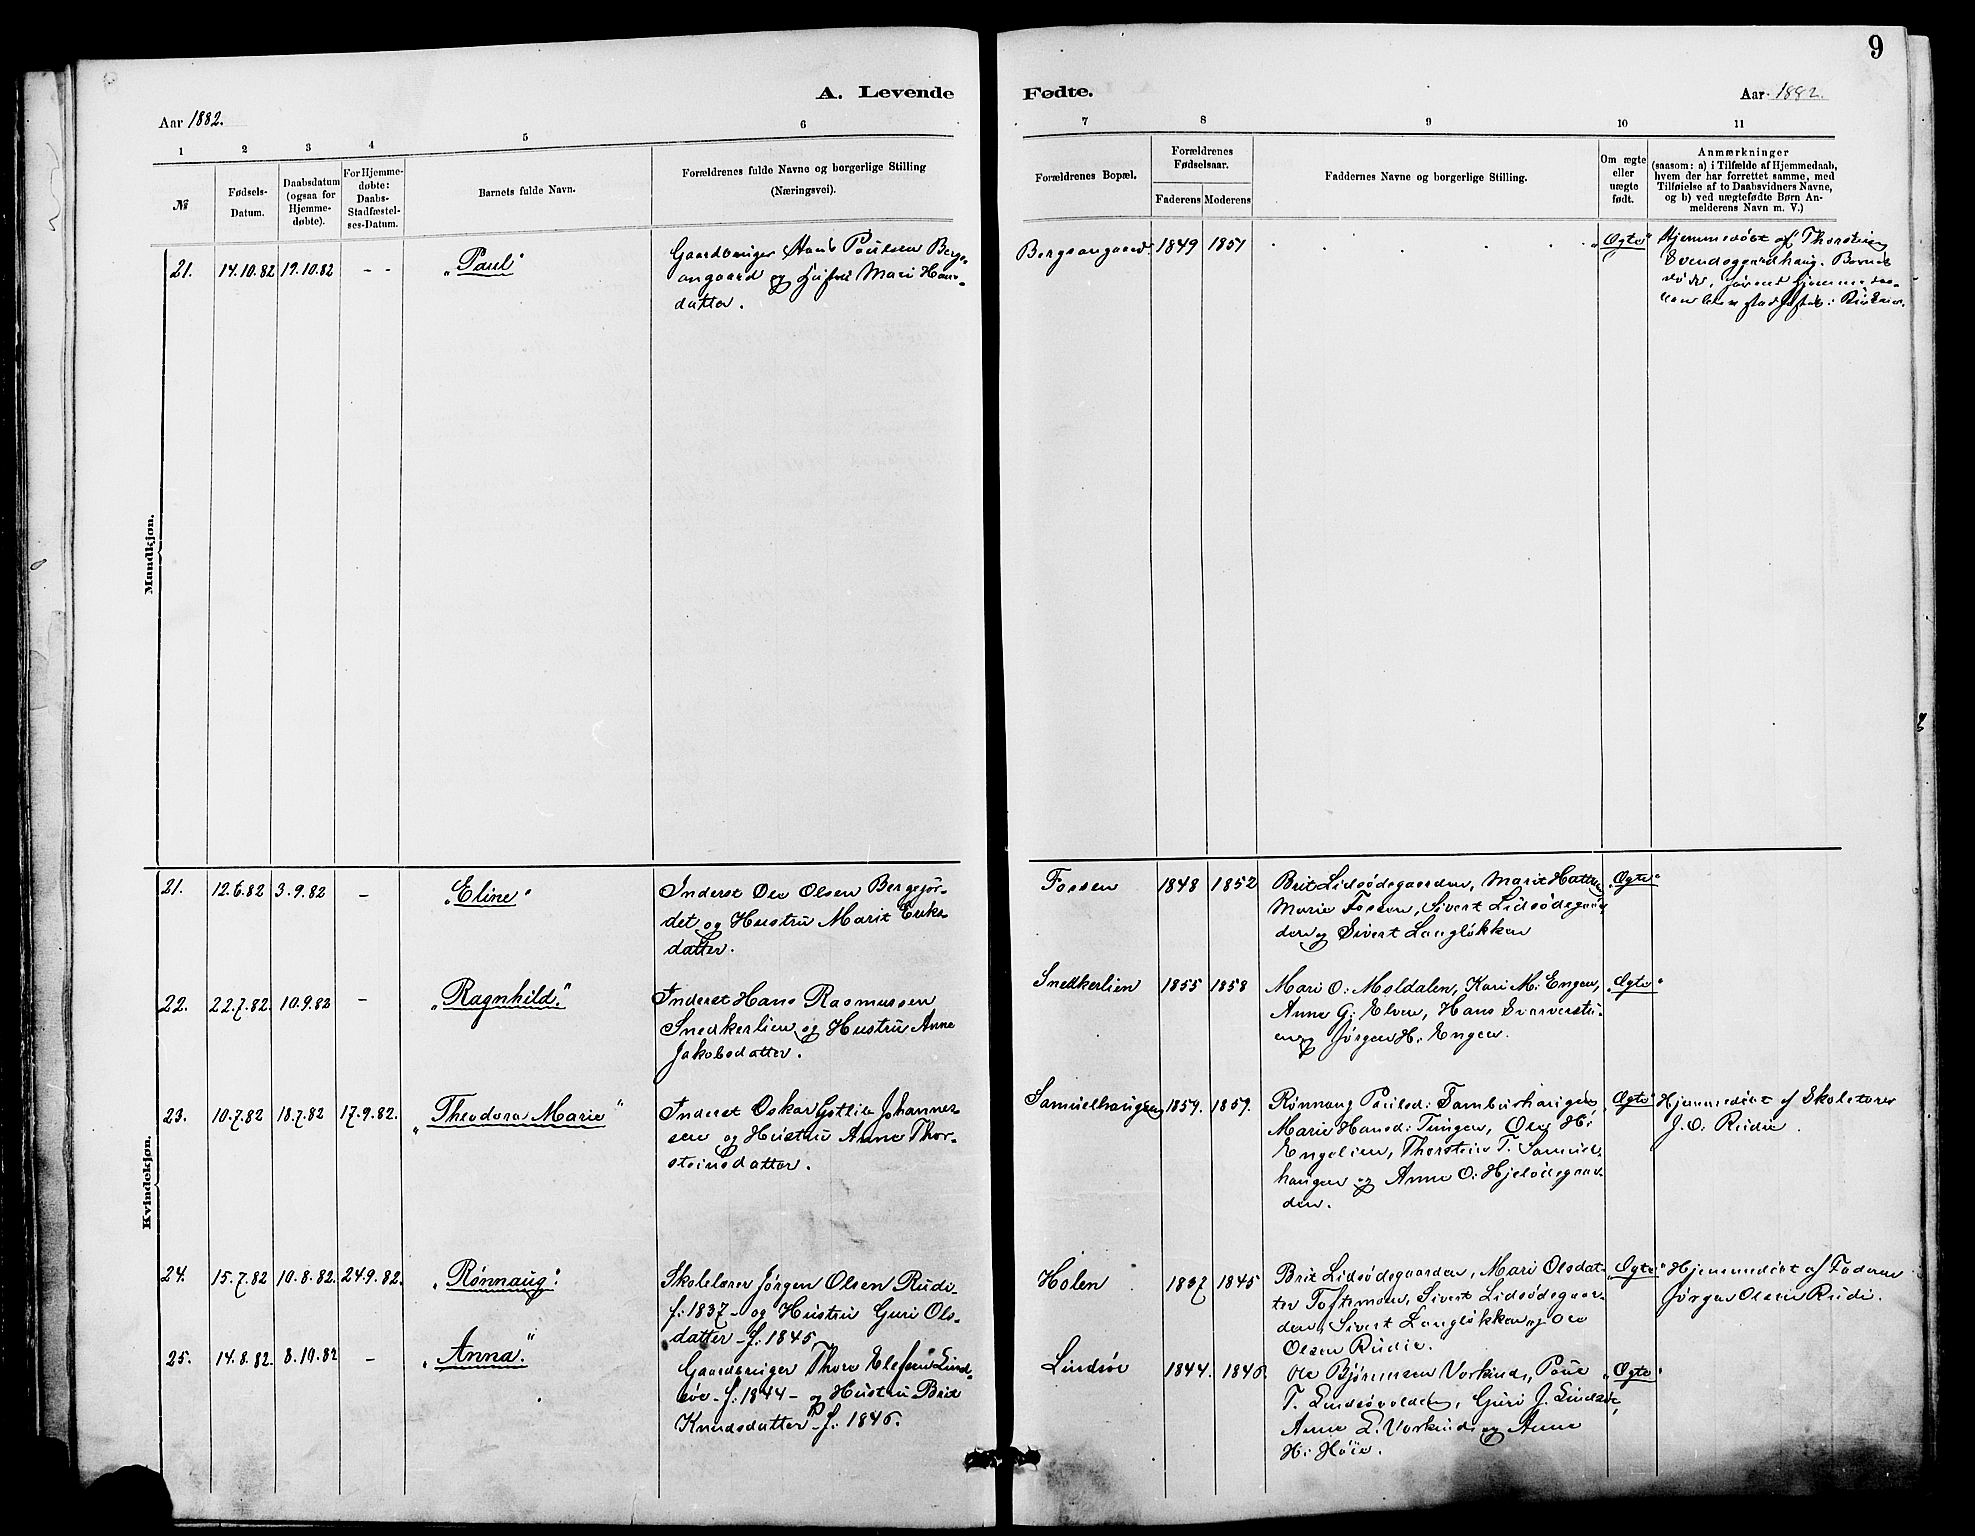 9
A. Levende
Fødte.
Aar 1882.
Aar 1882.
1 2 3 4 5 6
7 8 9 10 11
№
Fødsels-
Datum.
Daabsdatum
(ogsaa for
Hjemme-
døbte).
For Hjemme-
døbte:
Daabs-
Stadfæstel-
ses-Datum.
Barnets fulde Navn.
Forældrenes fulde Navne og borgerlige Stilling
(Næringsvei).
Forældrenes Bopæl.
Forældrenes
Fødselsaar.
Faderens Moderens
Faddernes Navne og borgerlige Stilling.
Om ægte
eller
uægte
født.
Anmærkninger
(saasom: a) i Tilfælde af Hjemmedaab,
hvem der har forrettet samme, med
Tilføielse af to Daabsvidners Navne,
og b) ved uægtefødte Børn An-
melderens Navn m. V.)
Mandkjøn.
21. 14.10.82 19.10.82 - - "Paul"
Gaardbruger Hans Poulsen Berg-
angaard og Hustru Mari Hans-
datter.
1849 1851 "Ægte"
Hjemmedøbt af Thorstein
Barnet
Kvindekjøn.
21. 12.6.82 3.9.82 - "Eline"
Inderst Ole Olsen Bergejor-
det og Hustru Marit Eriks-
datter.
Fossen 1848 1852
Brit Lidsødegaarden, Marit
Marie Fossen, Sivert Lidsødegaar-
den og Sivert Langløkken
"Ægte"
22. 22.7.82. 10.9.82 - "Ragnhild."
Inderst Hans Rasmussen
Snedkerlien og Hustru Anne
Jakobsdatter.
Snedkerlien 1855 1858
Mari O: Moldalen, Kari M: Engen,
Anne G: Elven, Hans
og Jørgen H: Engen.
"Ægte"
23. 10.7.82 18.7.82 17.9.82. "Theodora Marie"
Inderst Oskar Gotlib Johannes-
sen og Hustru Anne Thor-
steinsdatter.
Samuelhaugen 1859. 1859.
Rønnaug Poulsd:
Marie Hansd: Tungen, Ole H:
Engelien, Thorstein T. Samuel-
haugen og Anne O: Hjelødegaar-
den.
"Ægte"
Hjemmedøbt af Skolelærer
J. O: Rudie.
24. 15.7.82 10.8.82. 24.9.82. "Rønnaug."
Skolelærer Jørgen Olsen Rudi-
f: 1837 - og Hustru Guri Ols-
datter - f: 1845
Holen 1837 1845
Brit Lidsødegaarden, Mari Olsdat-
ter Toftemoen, Sivert Lidsødegaar-
den, Sivert Langløkken og Ole
Olsen Rudie.
"Ægte"
Hjemmedøbt af Faderen
Jørgen Olsen Rudi.
25. 14.8.82. 8.10.82 - "Anna."
Gaardbruger Thore Elefsen Lind-
søe - f: 1844 - og Hustru Brit
Knudsdatter - f: 1846.
Lindsøe 1844. 1846.
Ole Bjørnsen Vorkind, Poul
T. Lindsøvolden, Guri J. Lindsøe,
Anne L. Vorkind og Anne
H: Høie.
"Ægte"